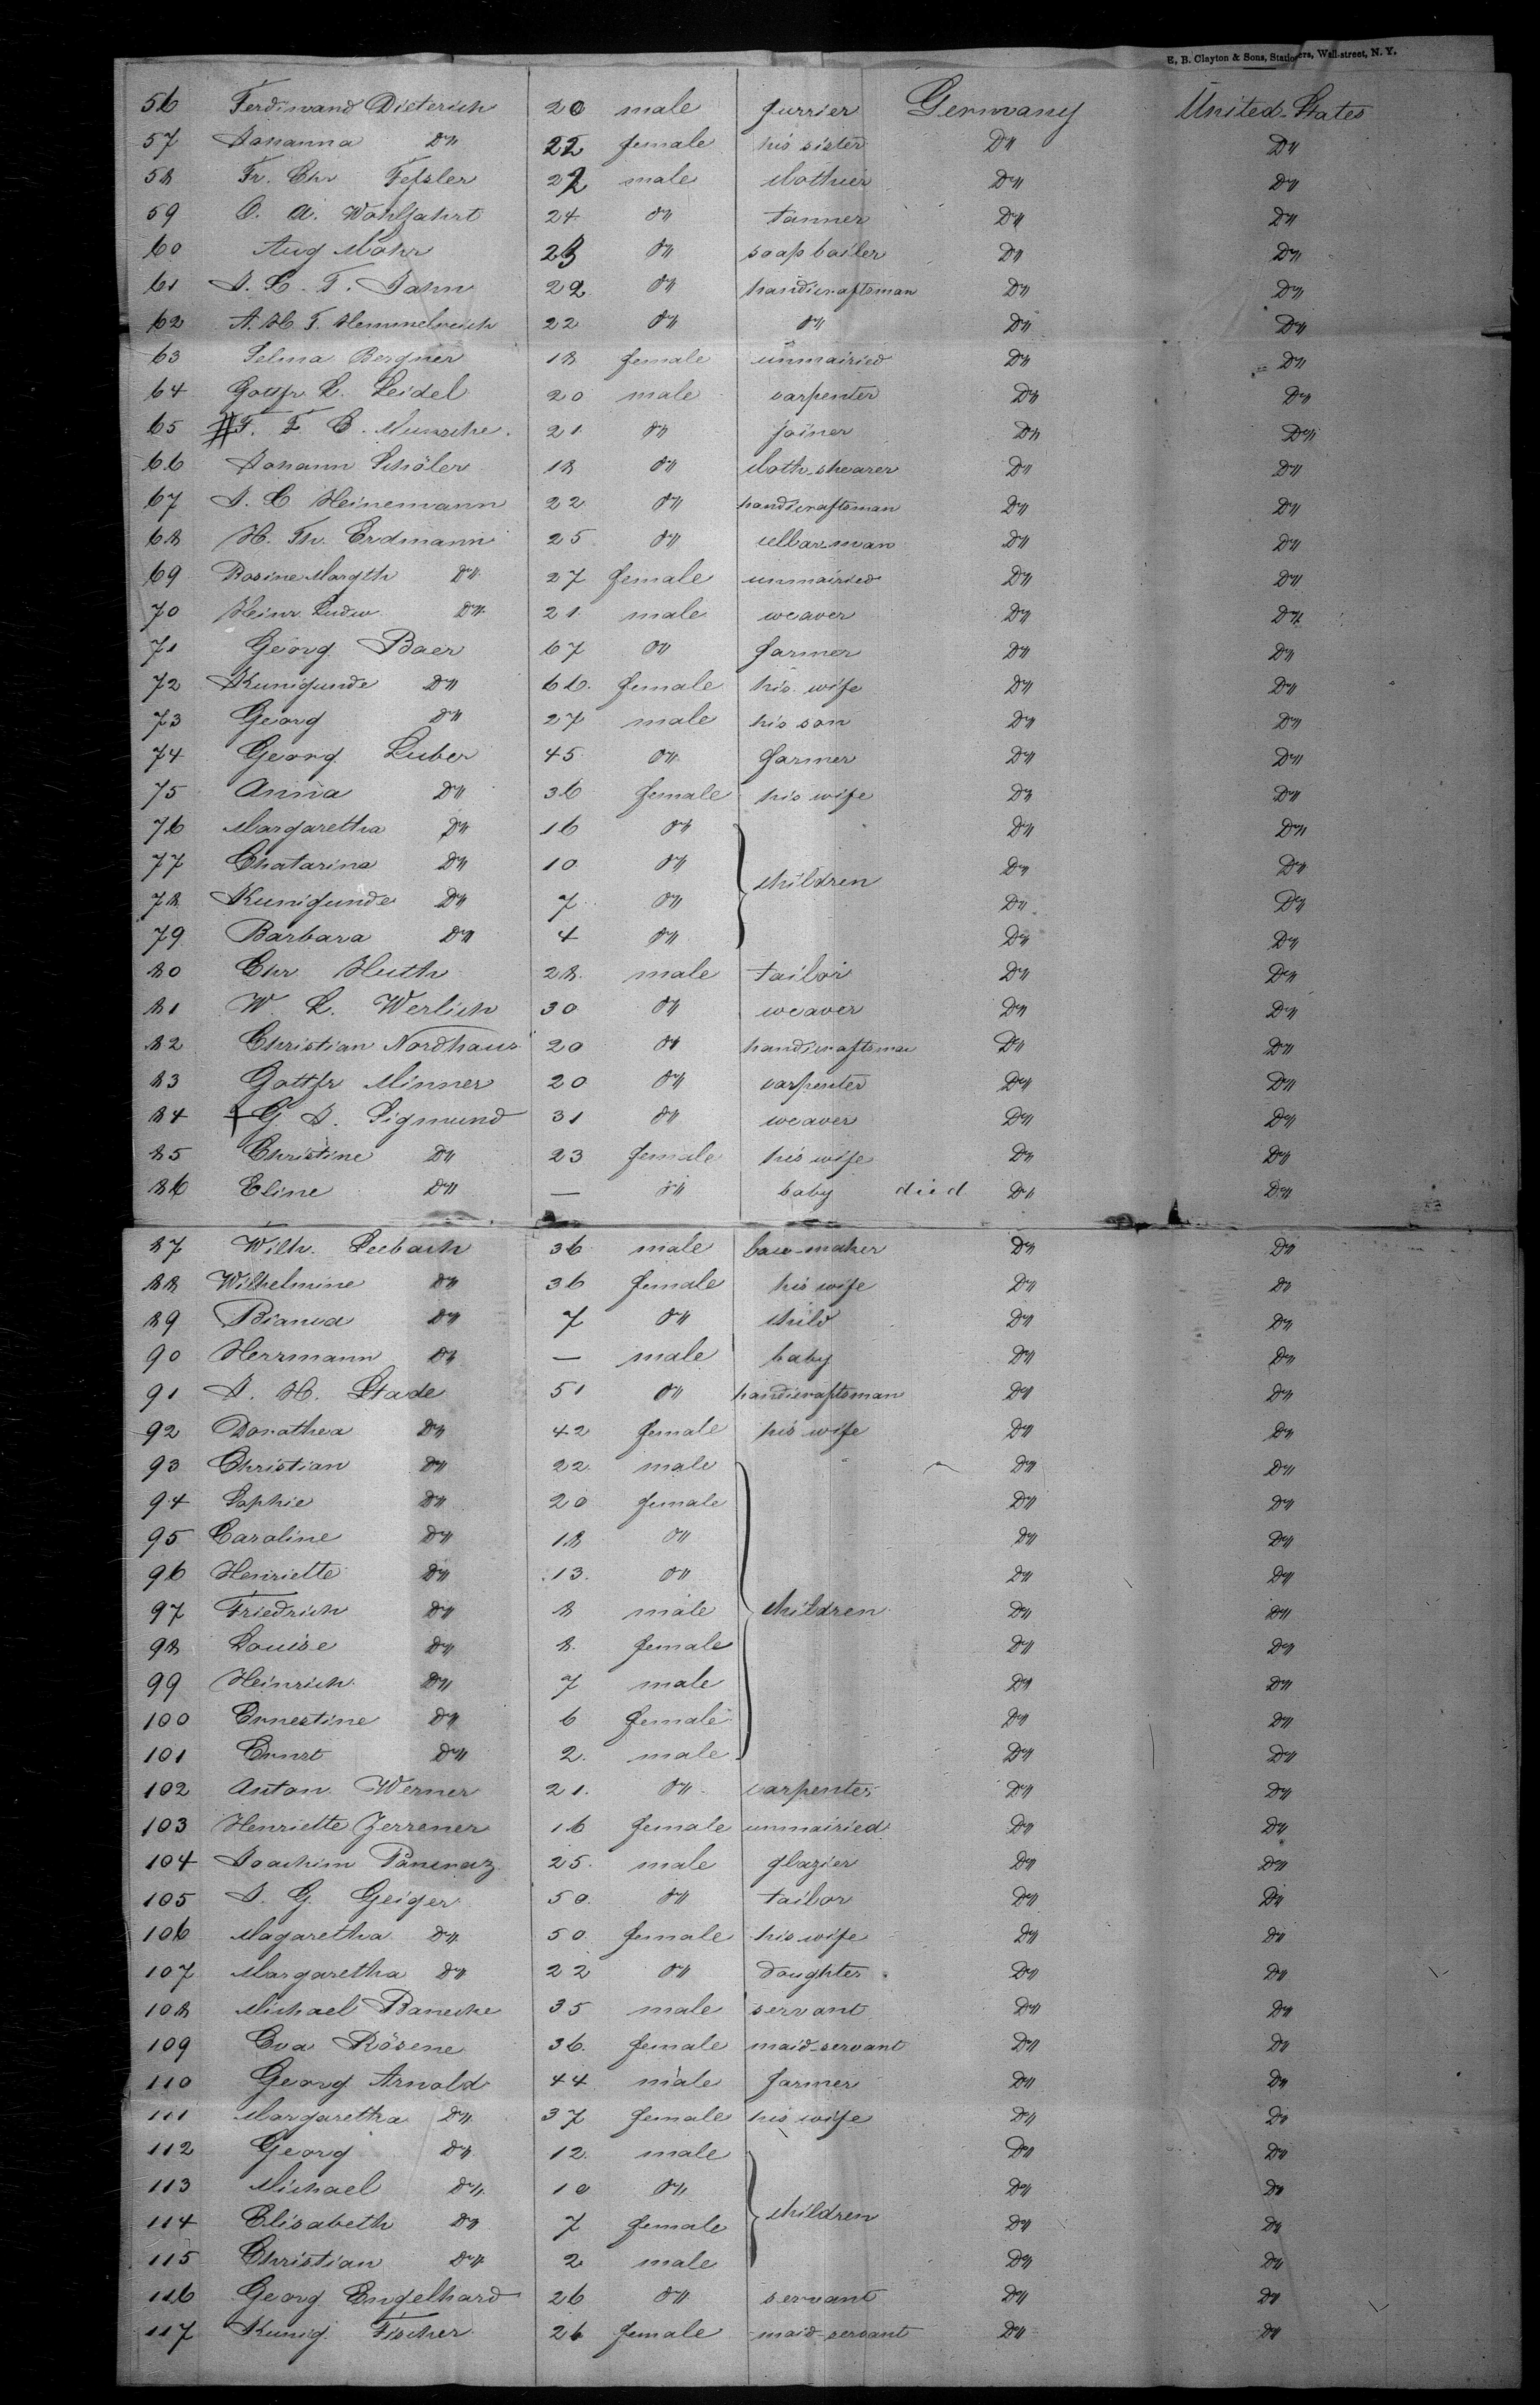 E. B. Clayton & Sons, Stationers, Wall-street, N. Y.
56 Ferdinand Dieterich 20 male furrier Germany United States
57 Johanna Do 22 female his sister Do Do
58 Fr. Chr Fessler 22 male clothier Do Do
59 C. A. Wohlfahrt 24 do tanner Do Do
60 Aug Mohr 23 do soap boiler Do Do
61 J. C. F. Jahn 22 do handicraftsman Do Do
62 A. H. F. Hemmelreich 22 do do Do Do
63 Selma Bergner 18 female unmairied Do Do
64 Gottfr L. Seidel 20 male carpenter Do Do
65 F. F. C. Munsche 21 do joiner Do Do
66 Johann Schöler 18 do cloth-shearer Do Do
67 J. C Heinemann 22 do handicraftsman Do Do
68 H. Th. Erdmann 25 do cellarman Do Do
69 Rosine Margth Do 27 female unmairied Do Do
70 Heinr. Ludw. Do 21 male weaver Do Do
71 Georg Baer 67 do farmer Do Do
72 Kunigunde Do 66 female his wife Do Do
73 Georg Do 27 male his son Do Do
74 Georg Luber 45 do farmer Do Do
75 Anna Do 36 female his wife Do Do
76 Margaretha Do 16 do Do Do
77 Chatarina Do 10 do children Do Do
78 Kunigunde Do 7 do Do Do
79 Barbara Do 4 do Do Do
80 Chr Huth 28 male tailor Do Do
81 W. L. Werlich 30 do weaver Do Do
82 Christian Nordhaus 20 do handicraftsman Do Do
83 Gottfr Minner 20 do carpenter Do Do
84 + G J. Sigmund 31 do weaver Do Do
85 Christine Do 23 female his wife Do Do
86 Eline Do — do baby died Do Do
87 Wilh. Seebach 36 male Do Do
88 Wilhelmine Do 36 female his wife Do Do
89 Bianca Do 7 do child Do Do
90 Herrmann Do — male baby Do Do
91 J. H. Stade 51 do handicraftsman Do Do
92 Dorothea Do 42 female his wife Do Do
93 Christian Do 22 male Do Do
94 Sophie Do 20 female Do Do
95 Caroline Do 18 do Do Do
96 Henriette Do 13 do Do Do
97 Friedrich Do 8 male children Do Do
98 Louise Do 8 female Do Do
99 Heinrich Do 7 male Do Do
100 Ernestine Do 6 female Do Do
101 Ernst Do 2 male Do Do
102 Anton Werner 21 do carpenter Do Do
103 Henriette Zerrener 16 female unmairied Do Do
104 Joachim Pancraz 25 male glazier Do Do
105 J. G Geiger 50 do tailor Do Do
106 Magaretha Do 50 female his wife Do Do
107 Margaretha Do 22 do daughter Do Do
108 Michael Banecke 35 male servant Do Do
109 Eva Rösene 36 female maid-servant Do Do
110 Georg Arnold 44 male farmer Do Do
111 Margaretha Do 37 female his wife Do Do
112 Georg Do 12 male Do Do
113 Michael Do 10 do Do Do
114 Elisabeth Do 7 female children Do Do
115 Christian Do 2 male Do Do
116 Georg Engelhard 26 do servant Do Do
117 Kunig Fischer 26 female maid-servant Do Do